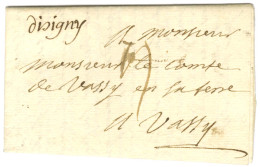 disigny
A monsieur
monsieur le Comte
de Vassy en sa terre
A Vassy